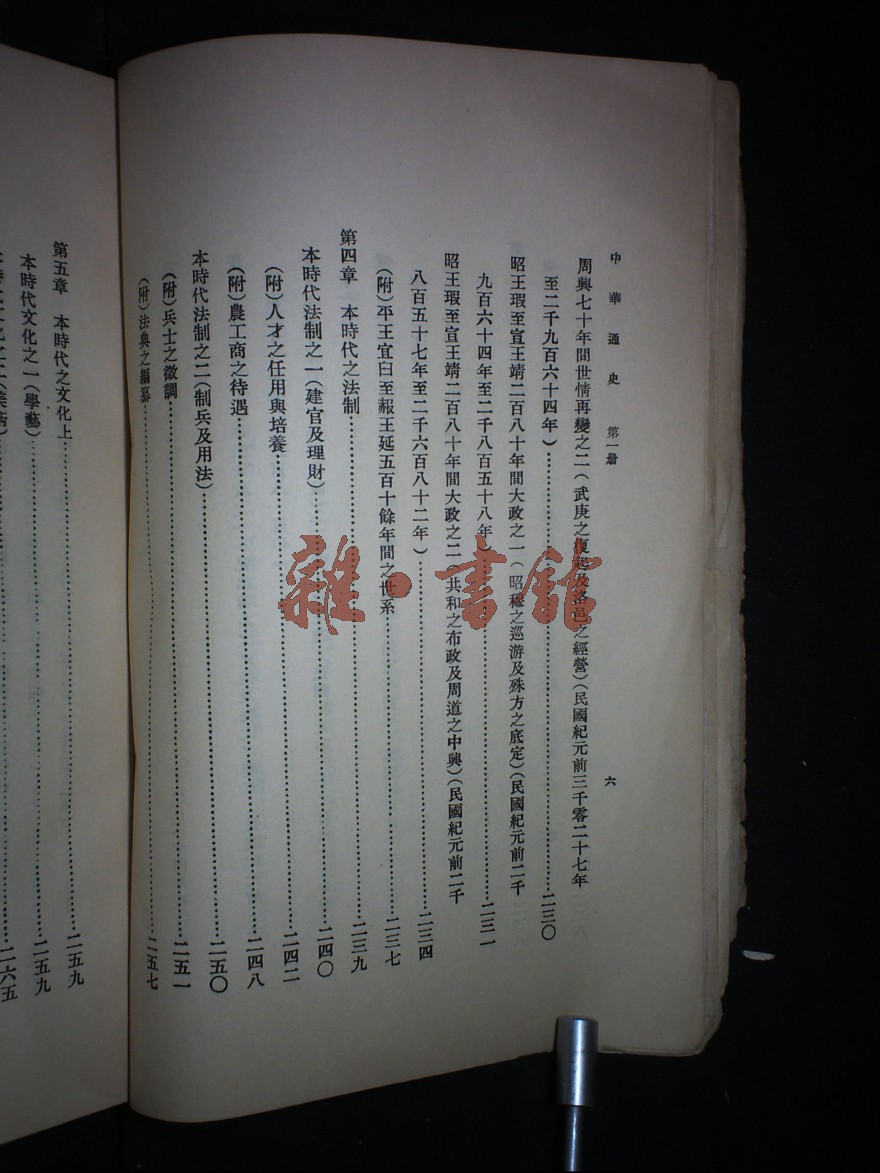 中華通史 第一册 六
周興七十年間世情再變之二(武庚之復起及洛邑之經營)(民國紀元前三千零二十七年
至二千九百六十四年)……二三〇
昭王瑕至宣王靖二百八十年間大政之一(昭穆之巡游及殊方之底定)(民國紀元前二千
九百六十四年至二千八百五十八年)……二三一
昭王瑕至宣王靖二百八十年間大政之二(共和之布政及周道之中興)(民國紀元前二千
八百五十七年至二千六百八十二年)……二三四
(附)平王宜臼至赧王延五百十餘年間之世系……二三七
第四章 本時代之法制……二三九
本時代法制之一(建官及理財)……二四〇
(附)人才之任用與培養……二四二
(附)農工商之待遇……二四八
本時代法制之二(制兵及用法)……二五〇
(附)兵士之徵調……二五一
(附)法典之編纂……二五七
第五章 本時代之文化上……二五九
本時代文化之一(學藝)……二五九
本時代文化之二(美術)……二六五
雜·書館